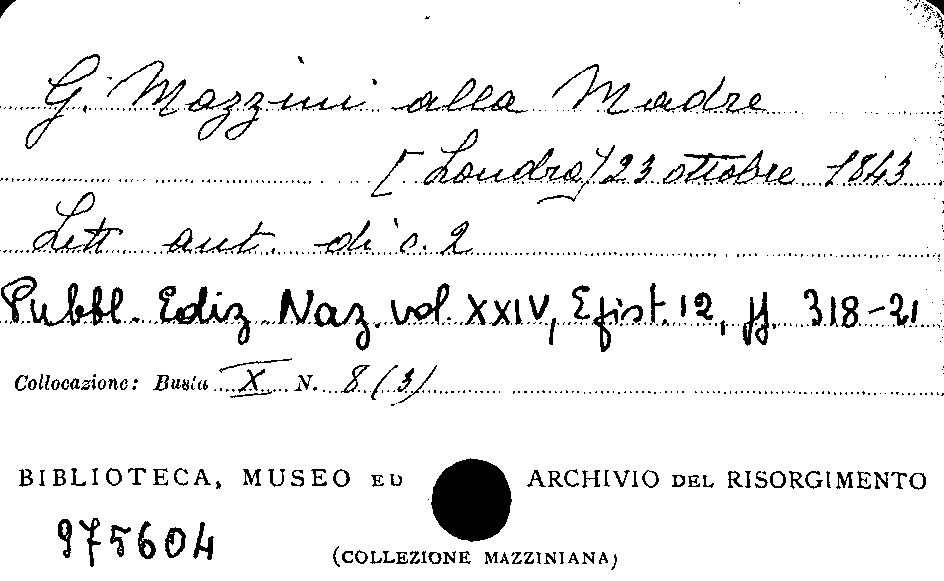 G. Mazzini alla Madre
[Londra] 23 ottobre 1843
Lett aut. di c. 2
Pubbl. Ediz. Naz. vol. XXIV, Epist. 12, pp. 318-21
Collocazione: Busta X N. 8 (3)
BIBLIOTECA, MUSEO ED ARCHIVIO DEL RISORGIMENTO
975604
(COLLEZIONE MAZZINIANA)